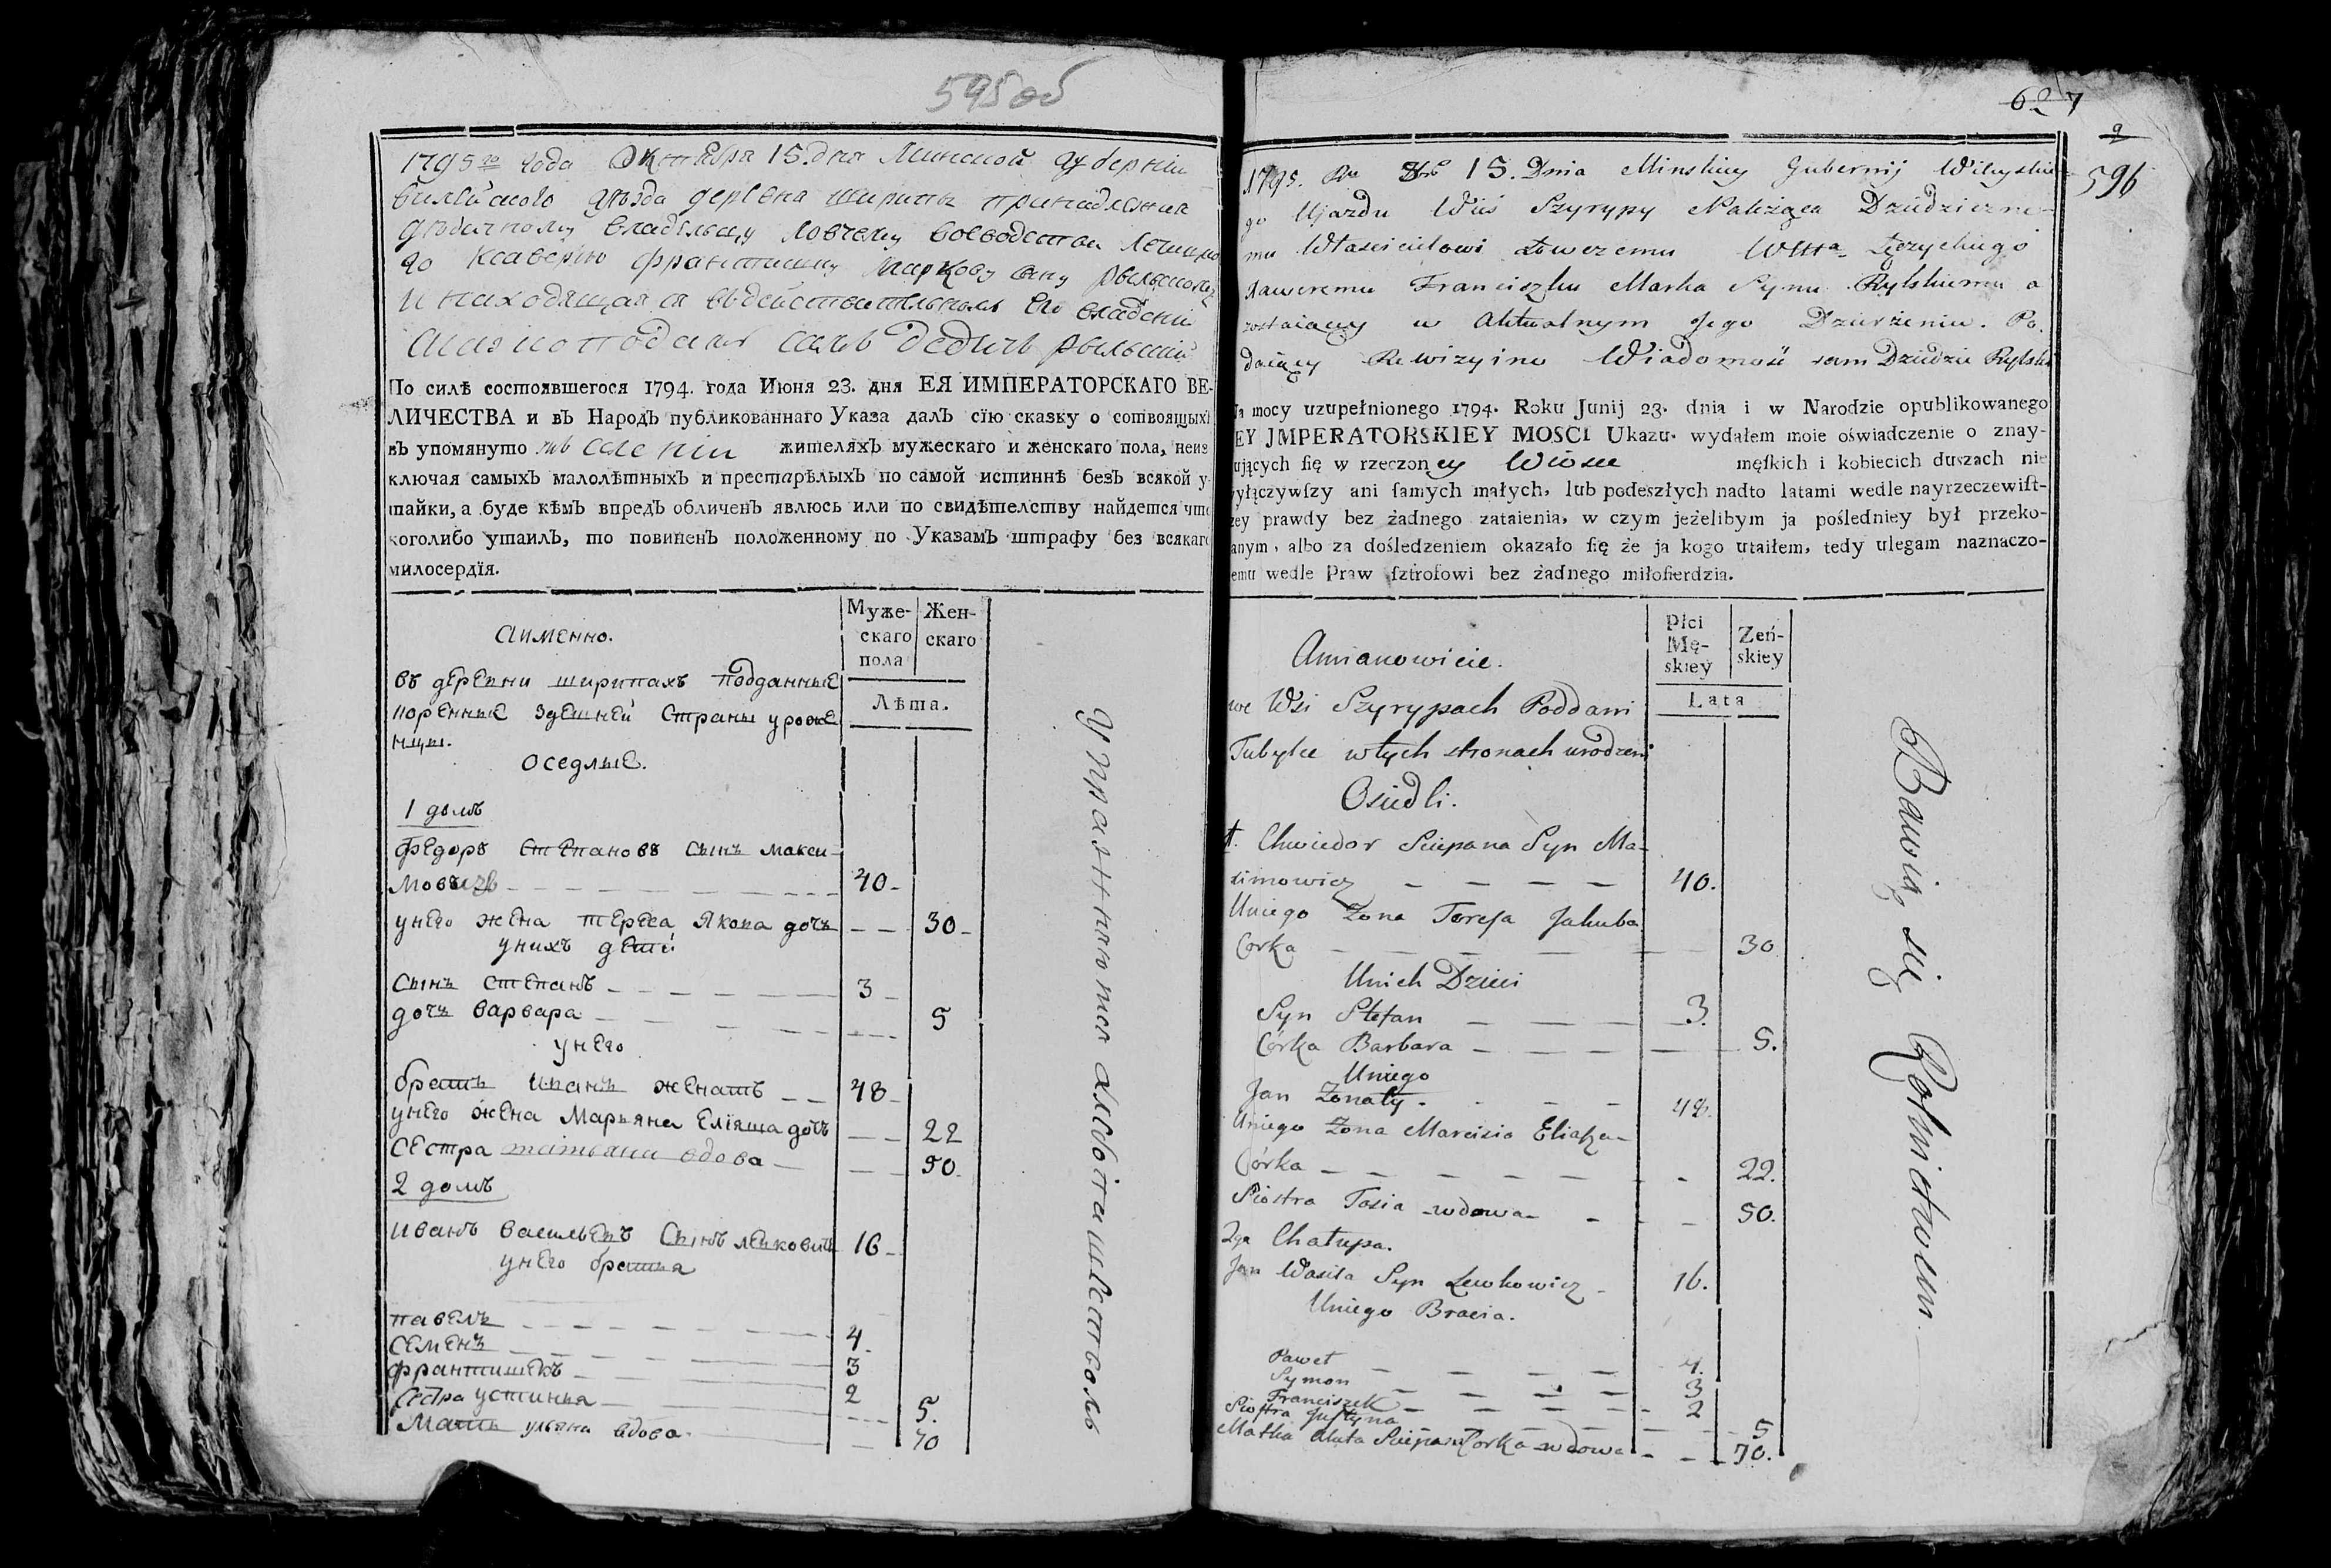 595 об
1795 го года Октября 15. дня Минской губернiи
вилейского уезда деревна ширипы принадлежит
дедичному владельцу ловчему воеводства
Ксаверiю францишку Маркову сыну рыльскому
и находящаяся вдействительном его владенiи
дедичъ рыльскiй
По силѣ состоявшегося 1794. года Июня 23. дня ЕЯ ИМПЕРАТОРСКАГО ВЕ-
ЛИЧЕСТВА и въ Народъ публикованнаго Указа далъ сїю сказку о состоящыхъ
въ упомянуто мъ селенiи жителяхъ мужескаго и женскаго пола, неиз
ключая самыхъ малолѣтныхъ и престарѣлыхъ по самой истиннѣ безъ всякой у-
тайки, а буде кѣмъ впредъ обличенъ явлюсь или по свидѣтелству найдется что
коголибо утаилъ, то повиненъ положенному по Указамъ штрафу без всякаго
милосердїя.
аименно.
Муже-скаго пола
Жен-скаго
Лѣта.
въ деревни ширипахъ подданные
коренные здешней страны уроже
нцы.
оседлые.
1 домъ
федоръ степановъ сынъ макси-
мовичъ 40
унего жена тереса якова дочь 30
унихъ дети
сынъ степанъ 3
дочь варвара 5
унего
братъ иванъ женатъ 48
унего жена Марьяна елiяша дочь 22
сестра татьяна вдова 50
2 домъ
иванъ васильевъ сынъ левковичъ 16
унего братья
павелъ 4
семенъ 3
францишекъ 2
сестра устинья 5.
Мать ульяна вдова 70
упражняются хлебопашествомъ
627
9
596
1795. Rku 8bra 15. Dnia Minskiey Gubernij Wileyskie-
go Ujazdu Wieś Szyrypy Należąca Dziedziczne-
mu Właścicielowi Łowczemu Wttwa Łęczyckiego
Xaweremu Franciszku Marka Synu Rylskiemu a
zostaiący w Aktualnym Jego Dzierżeniu. Po.
daiący Rewizyino Wiadomość sam Dziedzic Rylski
Na mocy uzupełnionego 1794. Roku Junij 23. dnia i w Narodzie opublikowanego
EY JMPERATORSKIEY MOSCI Ukazu. wydałem moie oświadczenie o znay-
ujących ſię w rzeczoney Wiosce męſkich i kobiecich duszach nie
yłączywſzy ani ſamych małych, lub podeszłych nadto latami wedle nayrzeczewiſt-
zey prawdy bez żadnego zataienia, w czym jeżelibym ja pośledniey był przeko-
anym, albo za dośledzeniem okazało ſię że ja kogo utaiłem, tedy ulegam naznaczo-
emu wedle Praw ſztrofowi bez żadnego miłoſierdzia.
Amianowicie.
Płci Mę-skiey
Zeń-skiey
Lata
we Wsi Szyrypach Poddani
Tubylce wtych stronach urodzeni
Osiedli.
1. Chwiedor Sciepana Syn Ma-
ximowicz 40.
Uniego Zona Teresa Jakuba
Corka 30
Unich Dzieci
Syn Stefan 3.
Córka Barbara 5.
Uniego
Jan Zonaty. 48.
Uniego Zona Marcisia Eliasza-
Córka 22.
Siostra Tasia wdowa 50.
2ga Chałupa.
Jan Wasila Syn Lewkowicz 16.
Uniego Bracia.
Paweł 4.
Symon 3
Franciszek 2
Siostra Justyna 5
Matka Sciepana Corka wdowa 70.
Bawią się Rolnictwem